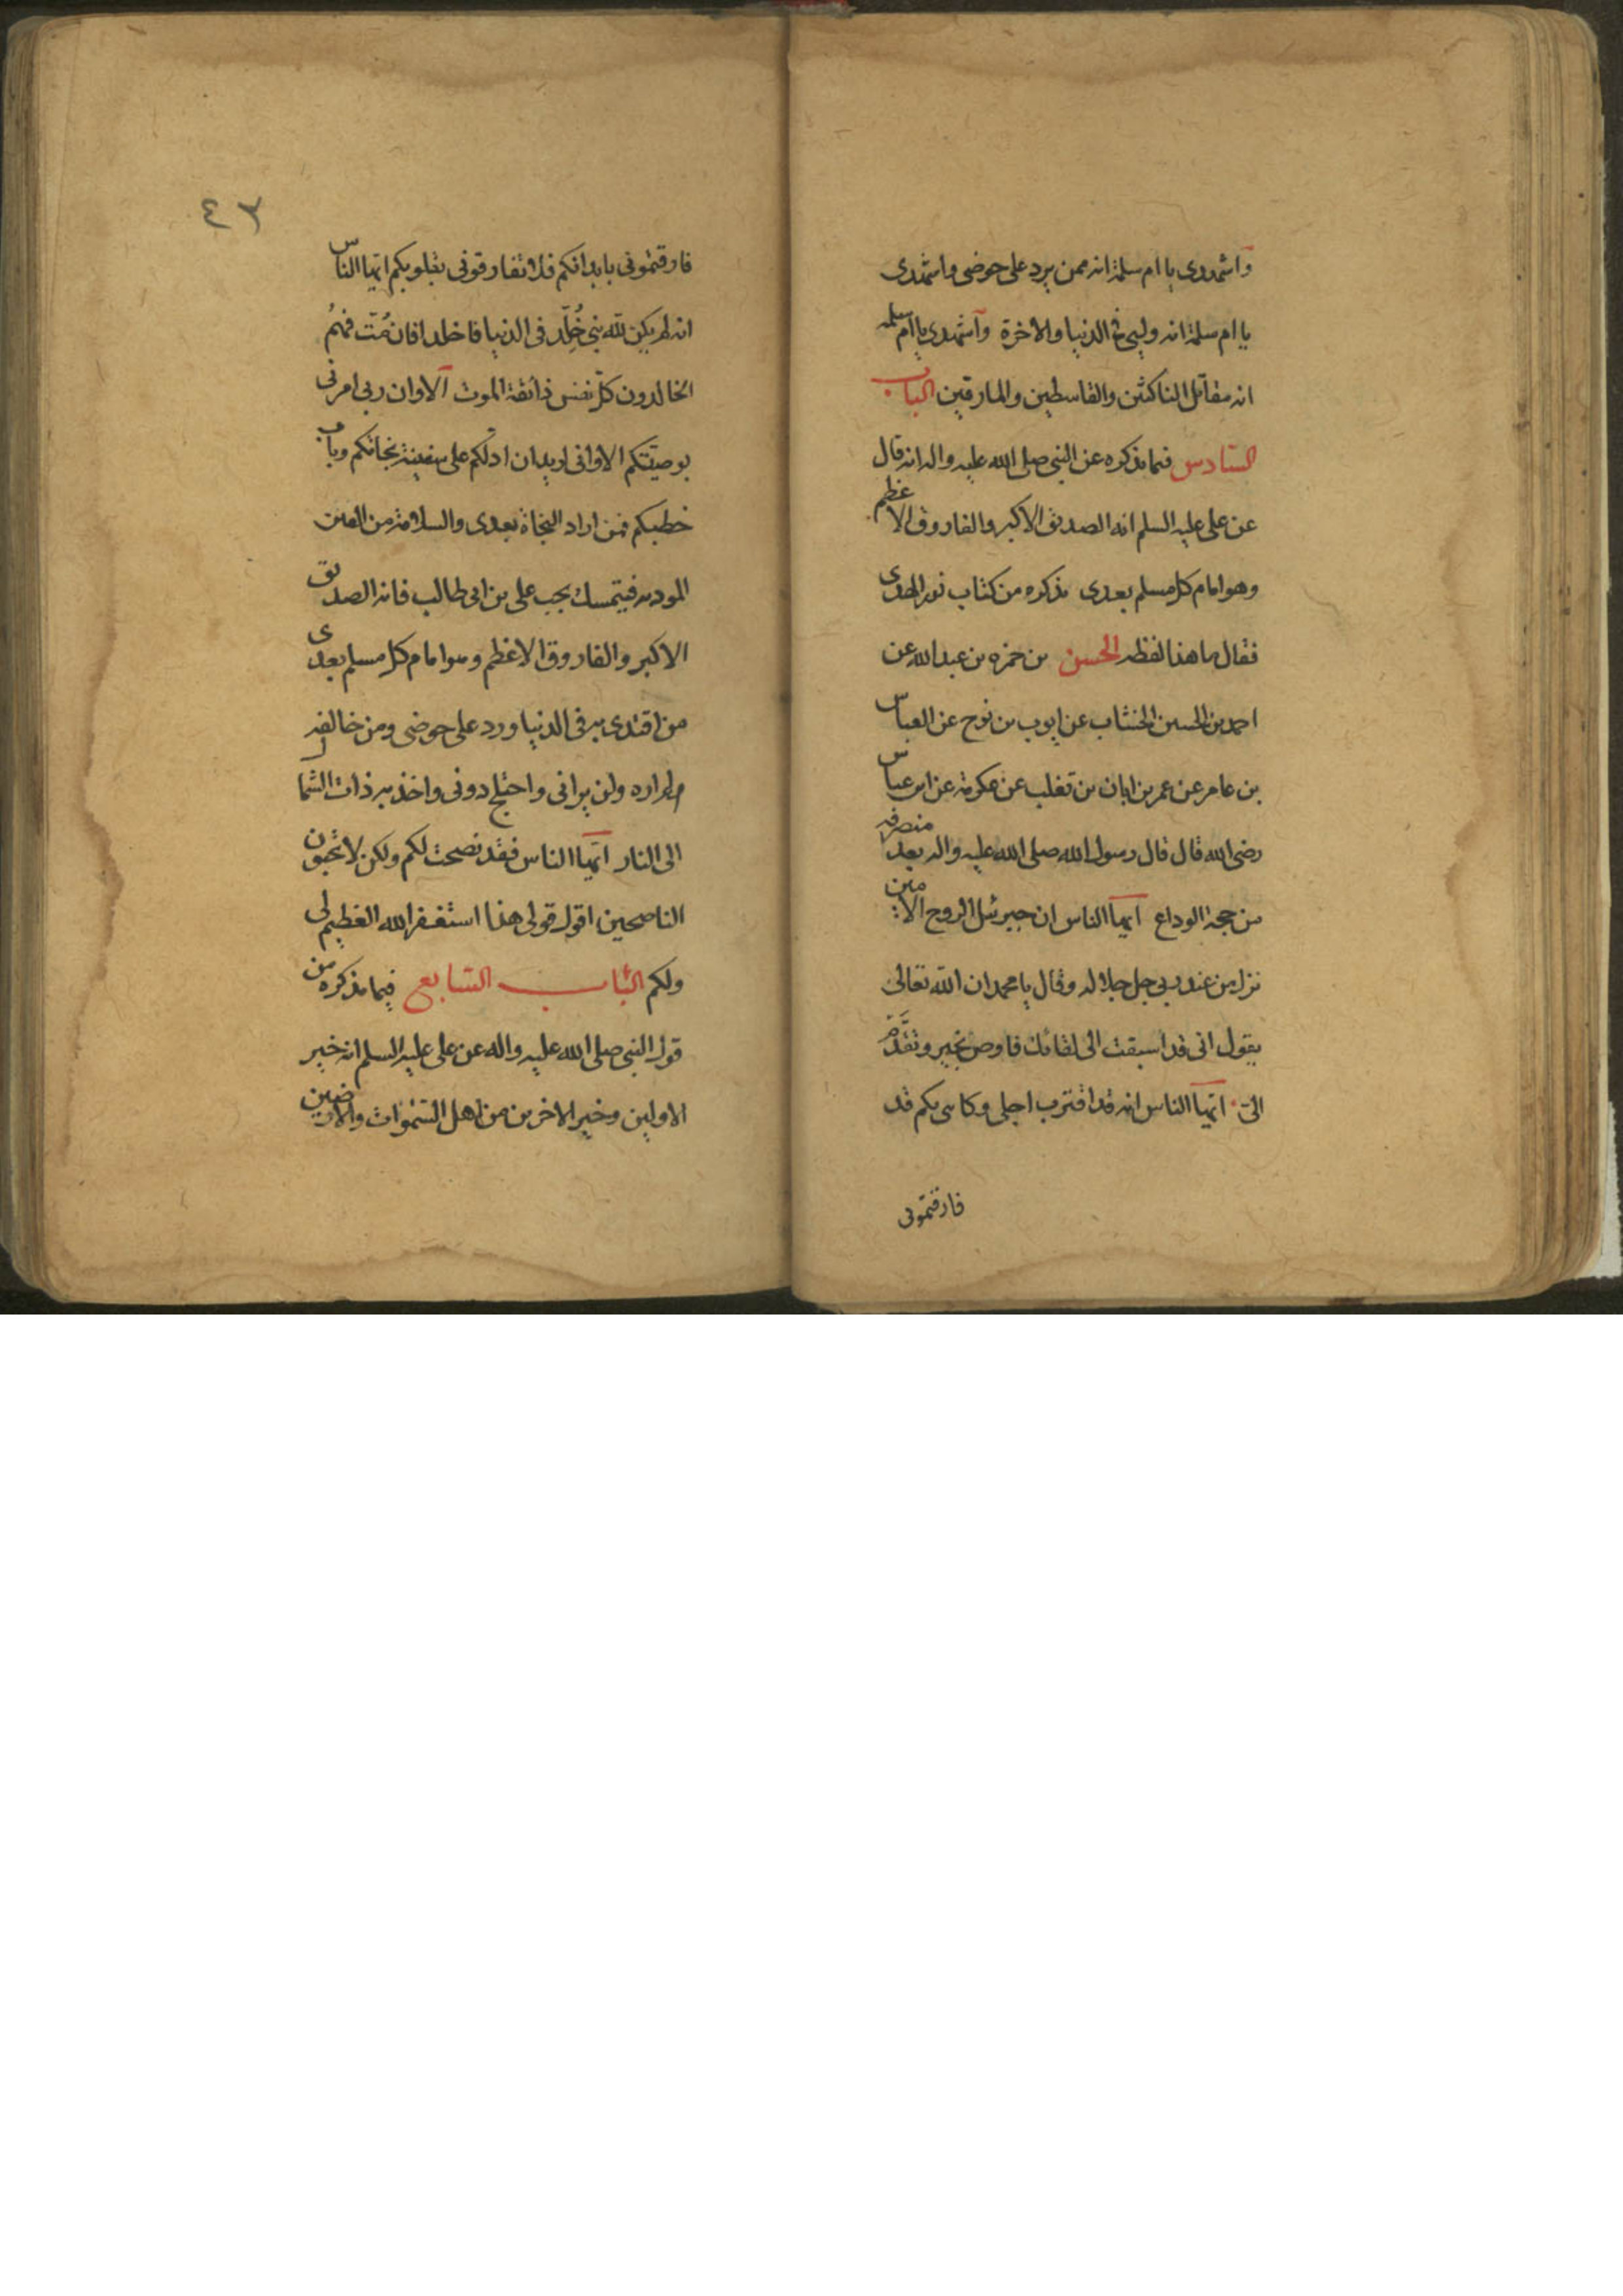 واشهدی یا ام سلمة انه ممن یرد علی حوضی واشهدی
یا ام سلمة انه ولیی فی الدنیا والاخرة واشهدی یا ام سلمه
انه مقاتل الناکثین والقاسطین والمارقین الباب
السادس فیما نذکره عن النبی صلی الله علیه واله انه قال
عن علی علیه السلم انه الصدیق الاکبر والفاروق الاعظم
وهو امام کل مسلم بعدی نذکره من کتاب نور الهدی
فقال ما هذا لفظه الحسن بن حمزه بن عبدالله عن
احمد بن الحسین الخشاب عن ایوب بن نوح عن العباس
بن عامر عن عمر بن ابان بن تغلب عن عکرمة عن ابن عباس
رضی الله قال قال رسول الله صلی الله علیه واله بعد منصرفه
من حجة الوداع ایها الناس ان جبرئیل الروح الامین
نزل من عند ربی جل جلاله وقال یا محمد ان الله تعالی
یقول انی قد اسبقت الی لقائك فاوص بخیر وتقدم
الی ایها الناس انه قد اقترب اجلی وکانی بکم قد
فارقتمونی
٤٣
فارقتمونی بابدانکم فلا تفارقونی بقلوبکم ایها الناس
انه لم یکن لله نبی خُلِّد فی الدنیا فاخلد افان مُتّ فهمُ
الخالدون کل نفس ذائقة الموت الا وان ربی امرنی
بوصیتکم الا وانی ارید ان ادلکم علی سفینة نجاتکم وباب
خطبکم فمن اراد النجاة بعدی والسلامة من الفتن
المودیه فیتمسك بحب علی بن ابی طالب فانه الصدیق
الاکبر والفاروق الاعظم وهو امام کل مسلم بعدی
من اقتدی به فی الدنیا ورد علی حوضی ومن خالفه
لم اراده ولن یرانی واختلج دونی واخذ به ذات الشمال
الی النار ایها الناس فقد نصحت لکم ولکن لا تحبون
الناصحین اقول قولی هذا استغفر الله العظیم لی
ولکم الباب السابع فیما نذکره من
قول النبی صلی الله علیه واله عن علی علیه السلم انه خیر
الاولین وخیر الاخرین من اهل السموات والارضین